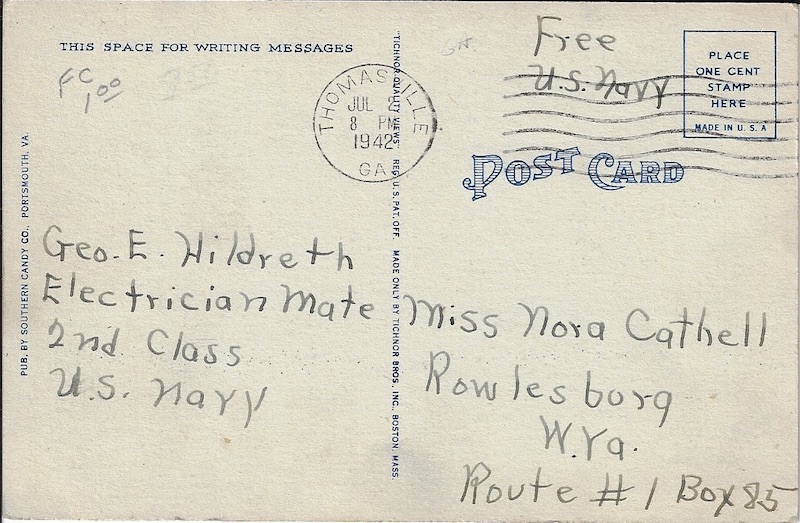 THIS SPACE FOR WRITING MESSAGES
FC
1.00
PUB. BY SOUTHERN CANDY CO., PORTSMOUTH, VA.
Geo. E. Hildreth
Electrician Mate
2nd Class
U.S. Navy
THOMASVILLE
JUL 2
8 PM
1942
GA.
"TICHNOR QUALITY VIEWS" REG. U. S. PAT. OFF. MADE ONLY BY TICHNOR BROS., INC., BOSTON, MASS.
GA.
Free
U.S. Navy
PLACE
ONE CENT
STAMP
HERE
MADE IN U. S. A
POST CARD
Miss Nora Cathell
Rowlesburg
W. Va.
Route # 1 Box 85